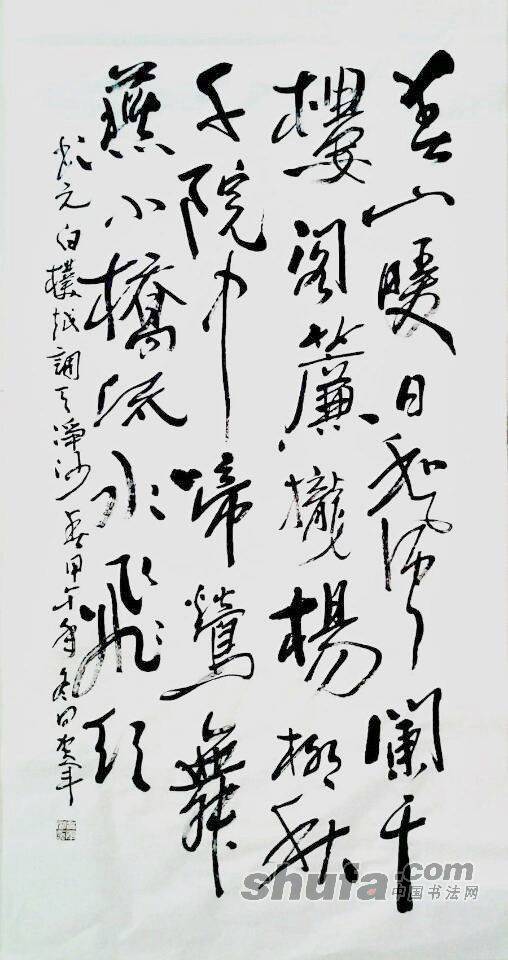 春山暖日和風闌干
樓閣簾櫳楊柳秋
千院中啼鶯舞
燕小橋流水飛紅
元白樸越調天淨沙春甲午年冬日
shufa.com
中国书法网